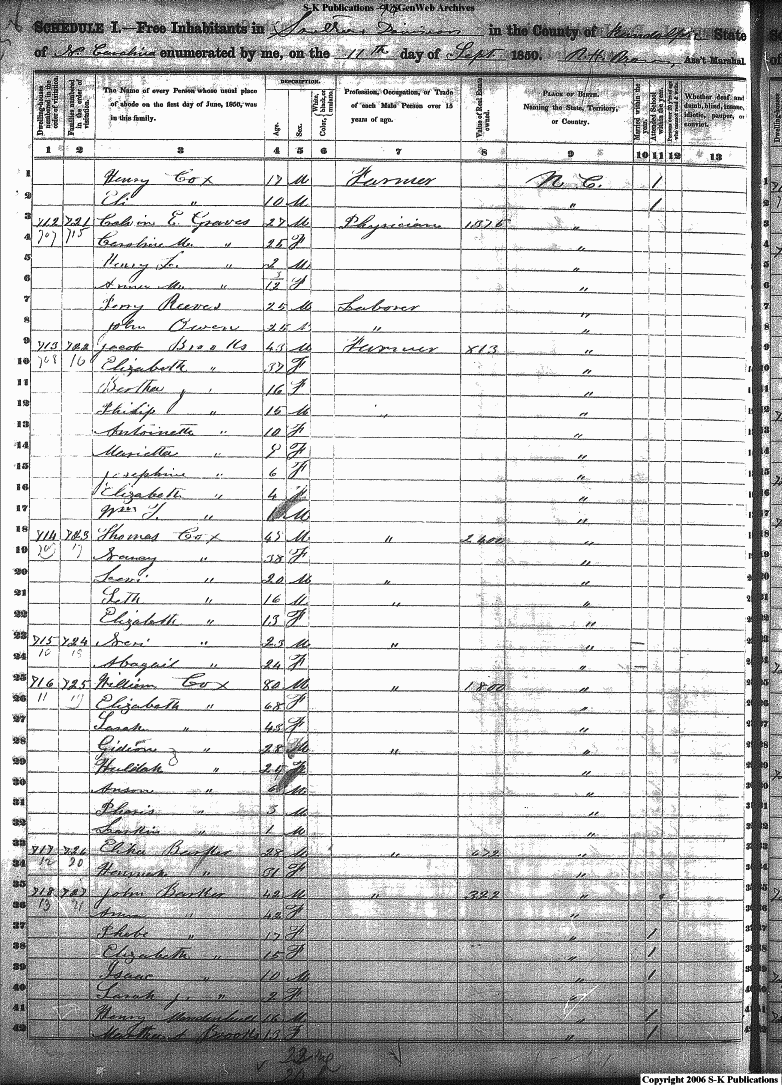 S-K Publications - USGenWeb Archives
SCHEDULE I.—Free Inhabitants in Southern Division in the County of Randolph State
of No Carolina enumerated by me, on the 11th day of Sept 1850. Ass't Marshal.
Dwelling-houses numbered in the order of visitation.
Families numbered in the order of visitation.
The Name of every Person whose usual place of abode on the first day of June, 1850, was in this family.
DESCRIPTION.
Age.
Sex.
Color, White, black, or mulatto.
Profession, Occupation, or Trade of each Male Person over 15 years of age.
Value of Real Estate owned.
PLACE OF BIRTH. Naming the State, Territory, or Country.
Married within the year.
Attended School within the year.
Persons over 20 y'rs of age who cannot read & write.
Whether deaf and dumb, blind, insane, idiotic, pauper, or convict.
1 2 3 4 5 6 7 8 9 10 11 12 13
1 Henry Cox 17 M Farmer N. C. 1
2 Eli " 10 M " 1
3 712 721 Calvin E. Graves 27 M Physician 1375 "
4 707 715 Caroline M. " 25 F "
5 Henry L. " 2 M "
6 M. " 3/12 F "
7 Reeves 25 M Laborer "
8 John Owen 25 " "
9 713 722 Jacob Brooks 43 M Farmer 813 "
10 708 16 Elizabeth " 37 F "
11 Bertha " 16 F "
12 Philip " 15 M " "
13 Antoinette " 10 F "
14 Marietta " 8 F "
15 Josephine " 6 F "
16 Elizabeth " 4 F "
17 Wm T. " 1 M "
18 714 723 Thomas Cox 45 M " 2400 "
19 17 Nancy " 38 F "
20 Levi " 20 M " "
21 Seth " 16 M " "
22 Elizabeth " 13 F "
23 715 724 " 23 M " "
24 Abagail " 24 F "
25 716 725 William Cox 80 M " 1800 "
26 11 Elizabeth " 68 F "
27 Sarah " 43 F "
28 Gideon " 28 M " "
29 Huldah " 25 F "
30 Anson " 6 M "
31 " 3 M "
32 Larkin " 1 M "
33 717 726 Barker 28 M " 672 "
34 12 20 Hannah " 31 F "
35 718 727 John Barker 42 M " 322 "
36 13 21 " 42 F "
37 Phebe " 17 F " 1
38 Elizabeth " 15 F " 1
39 Isaac " 10 M " 1
40 Sarah J. " 2 F "
41 Henry Mendenhall 16 M " 1
42 Martha A Brooks 13 F " 1
Copyright 2006 S-K Publications